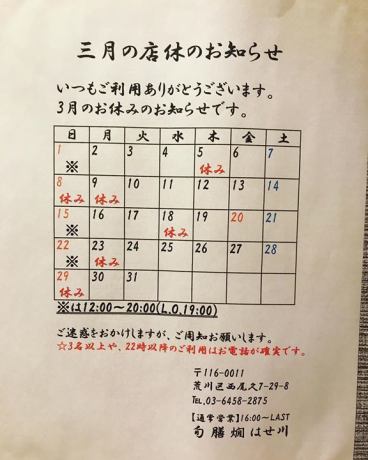 三月の店休のお知らせ
いつもご利用ありがとうございます。
3月のお休みのお知らせです。
日 月 火 水 木 金 土
1 2 3 4 5 6 7
※ 休み
8 9 10 11 12 13 14
休み 休み
15 16 17 18 19 20 21
※ 休み
22 23 24 25 26 27 28
※ 休み
29 30 31
休み
※は12:00～20:00(L.O.19:00)
ご迷惑をおかけしますが、ご周知お願いします。
☆3名以上や、22時以降のご利用はお電話が確実です。
〒116-0011
荒川区西尾久7-29-8
TEL,03-6458-2875
【通常営業】16:00～LAST
旬膳燗 はせ川